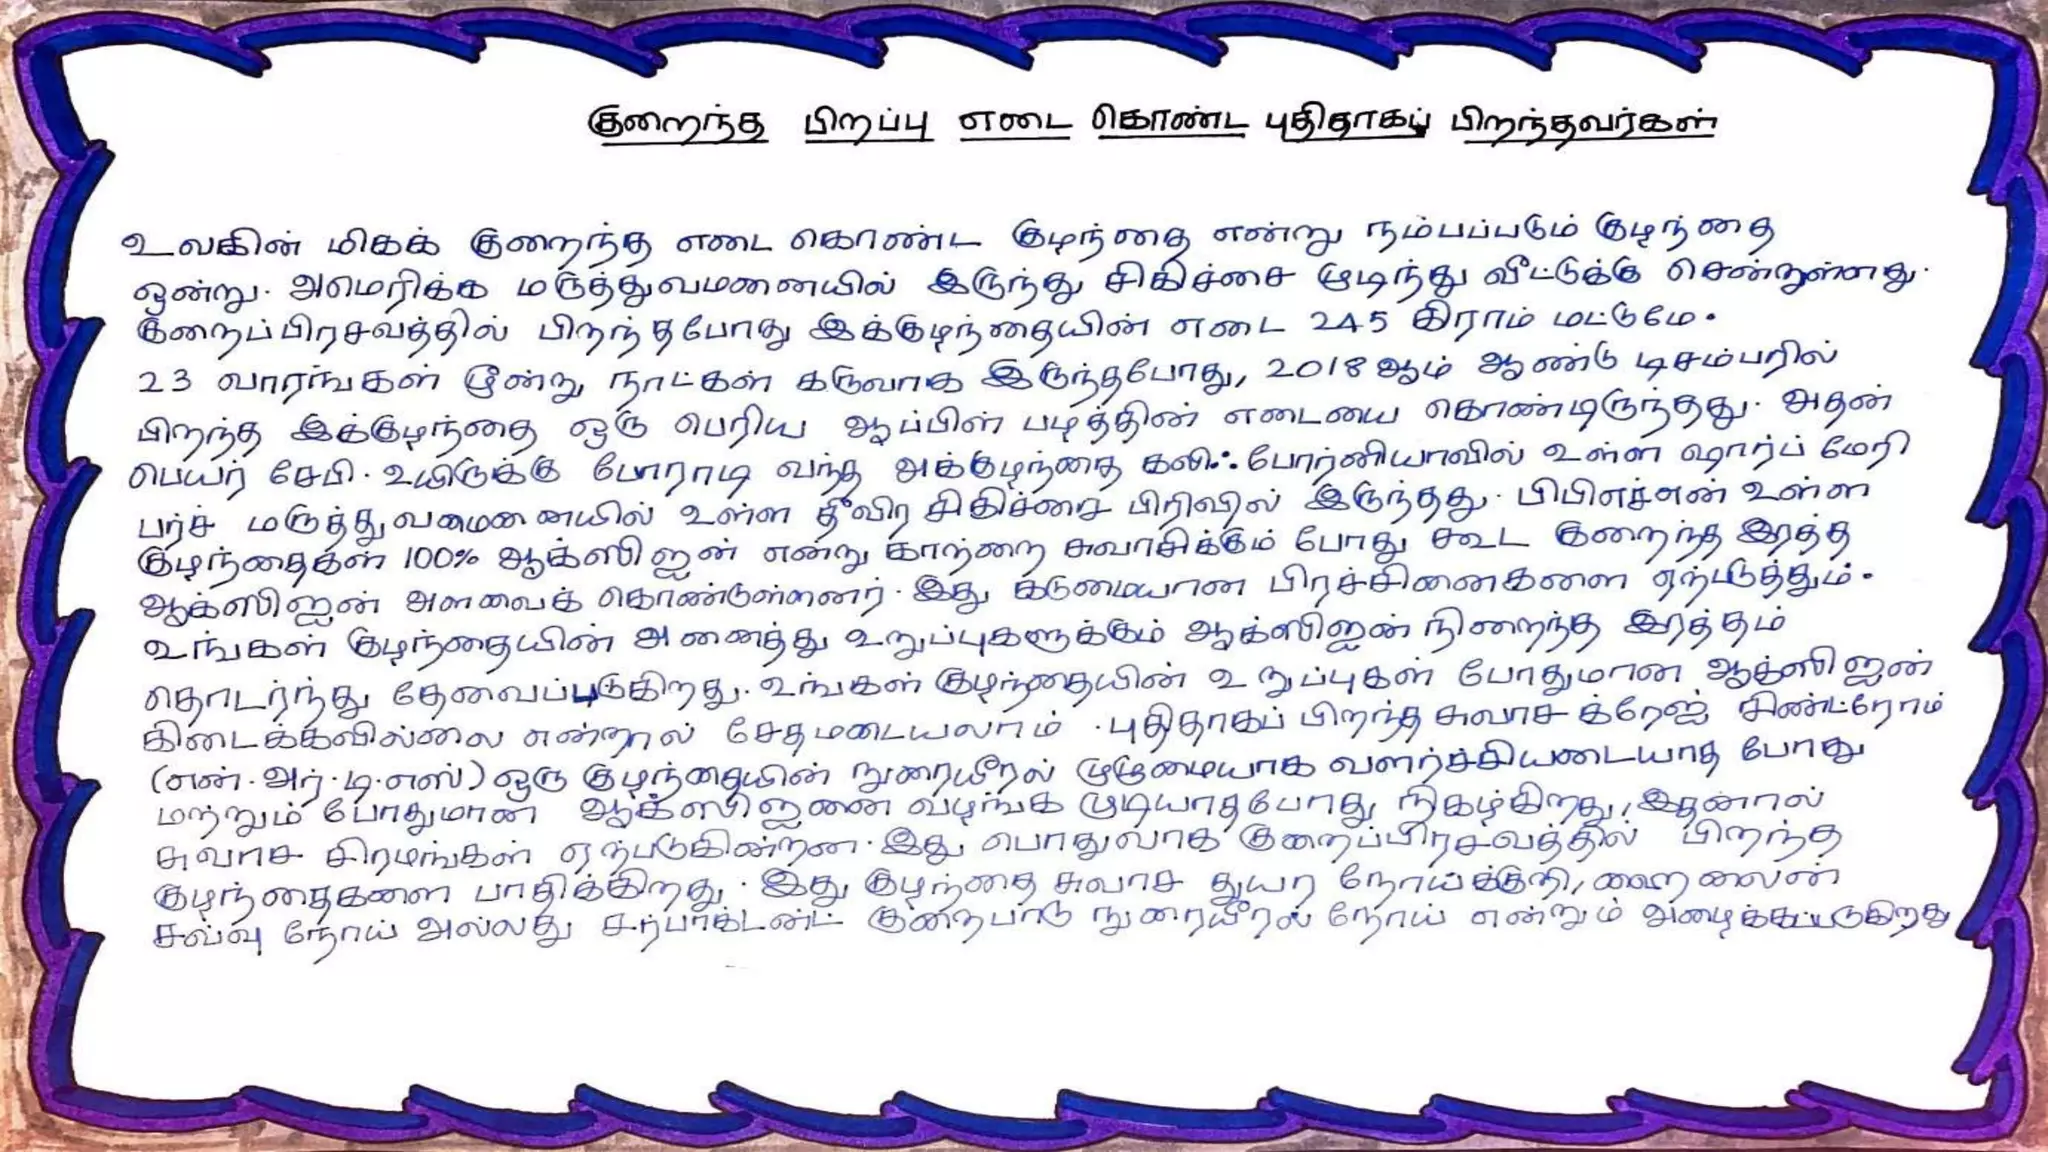 குறைந்த பிறப்பு எடை கொண்ட புதிதாகப் பிறந்தவர்கள்
உலகின் மிகக் குறைந்த எடை கொண்ட குழந்தை என்று நம்பப்படும் குழந்தை
ஒன்று. அமெரிக்க மருத்துவமனையில் இருந்து சிகிச்சை முடிந்து வீட்டுக்கு சென்றுள்ளது.
குறைப்பிரசவத்தில் பிறந்தபோது இக்குழந்தையின் எடை 245 கிராம் மட்டுமே.
23 வாரங்கள் மூன்று நாட்கள் கருவாக இருந்தபோது, 2018ஆம் ஆண்டு டிசம்பரில்
பிறந்த இக்குழந்தை ஒரு பெரிய ஆப்பிள் பழத்தின் எடையை கொண்டிருந்தது. அதன்
பெயர் சேபி. உயிருக்கு போராடி வந்த அக்குழந்தை கலிஃபோர்னியாவில் உள்ள ஷார்ப் மேரி
பர்ச் மருத்துவமைனையில் உள்ள தீவிர சிகிச்சை பிரிவில் இருந்தது. பிபிஎச்என் உள்ள
குழந்தைகள் 100% ஆக்ஸிஜன் என்று காற்றை சுவாசிக்கும் போது கூட குறைந்த இரத்த
ஆக்ஸிஜன் அளவைக் கொண்டுள்ளனர். இது கடுமையான பிரச்சினைகளை ஏற்படுத்தும்.
உங்கள் குழந்தையின் அனைத்து உறுப்புகளுக்கும் ஆக்ஸிஜன் நிறைந்த இரத்தம்
தொடர்ந்து தேவைப்படுகிறது. உங்கள் குழந்தையின் உறுப்புகள் போதுமான ஆக்ஸிஜன்
கிடைக்கவில்லை என்றால் சேதமடையலாம். புதிதாகப் பிறந்த சுவாச க்ரேஜ் சிண்ட்ரோம்
(என்.அர்.டி.எஸ்) ஒரு குழந்தையின் நுரையீரல் முழுமையாக வளர்ச்சியடையாத போது
மற்றும் போதுமான் ஆக்ஸிஜனை வழங்க முடியாதபோது நிகழ்கிறது, இதனால்
சுவாச சிரமங்கள் ஏற்படுகின்றன. இது பொதுவாக குறைப்பிரசவத்தில் பிறந்த
குழந்தைகளை பாதிக்கிறது. இது குழந்தை சுவாச துயர நோய்க்குறி, ஹைலைன்
சவ்வு நோய் அல்லது சர்பாக்டண்ட் குறைபாடு நுரையீரல் நோய் என்றும் அழைக்கப்படுகிறது